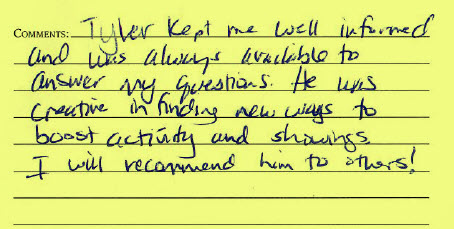 COMMENTS: Tyler kept me well informed
and was always available to
answer my questions. He was
creative in finding new ways to
boost activity and showings.
I will recommend him to others!